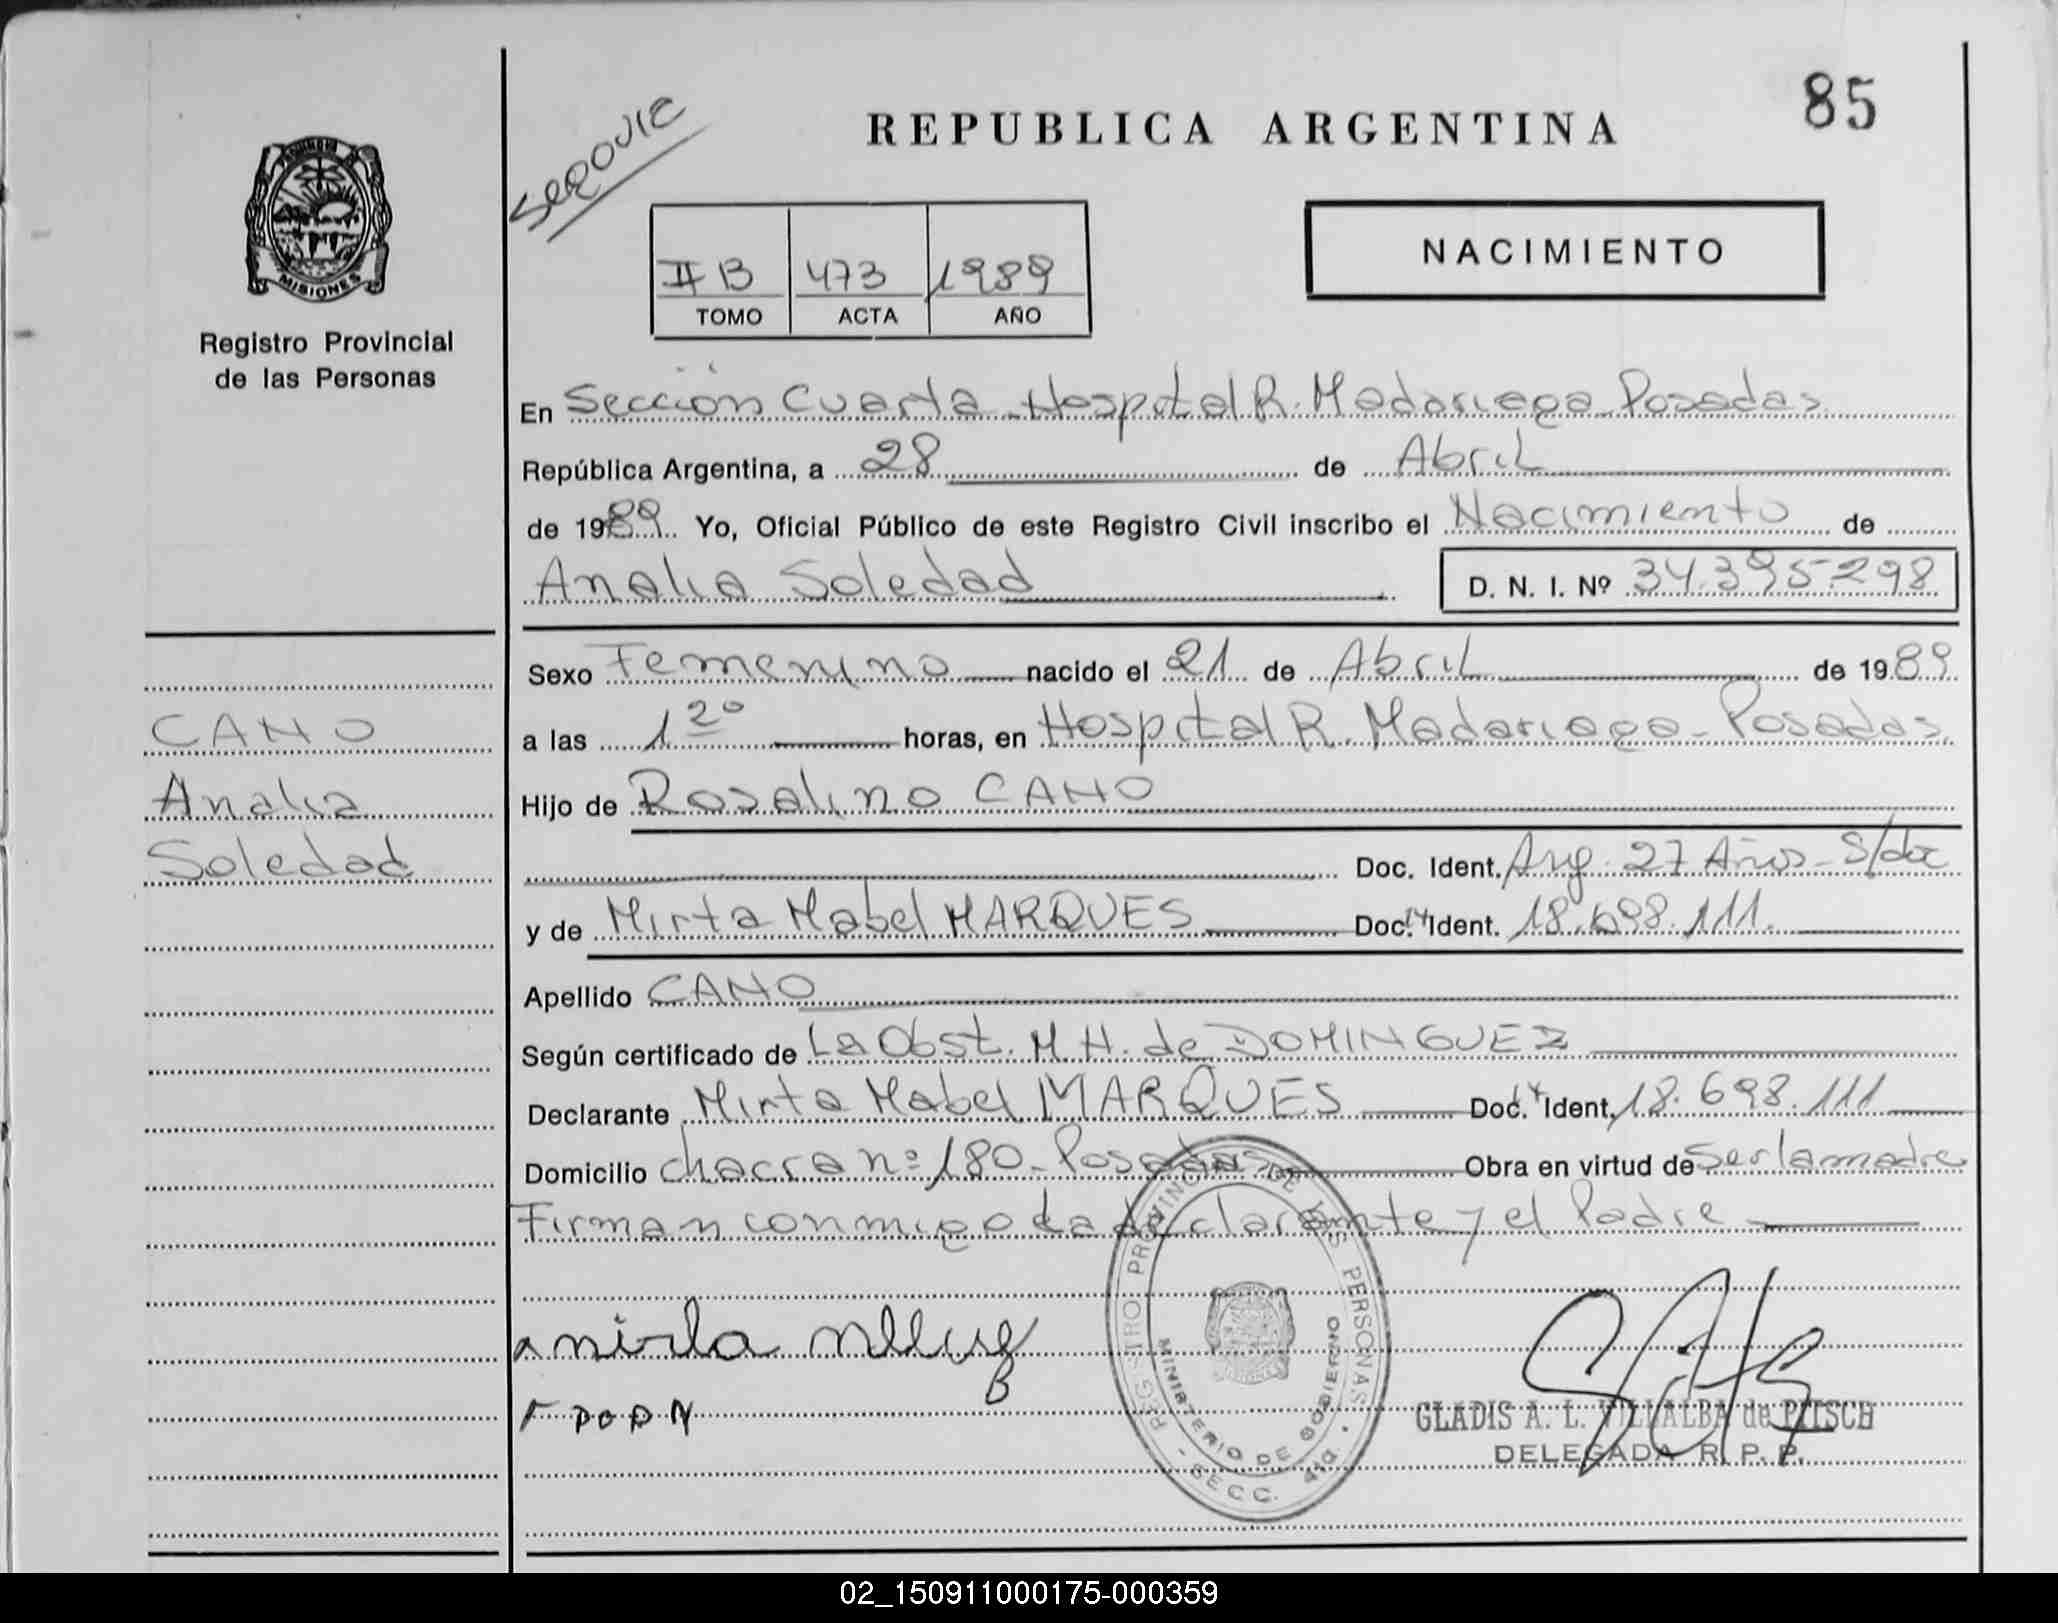 85
REPUBLICA ARGENTINA
SEGOVIE
II B 473 1989
TOMO ACTA AÑO
NACIMIENTO
MISIONES
Registro Provincial
de las Personas
En Sección Cuarta Hospital R. Madariaga Posadas
República Argentina, a 28 de Abril
de 1989 Yo, Oficial Público de este Registro Civil inscribo el Nacimiento de
Analia Soledad D. N. I. Nº 34.395.298
Sexo Femenino nacido el 21 de Abril de 1989
a las 1 20 horas, en Hospital R. Madariaga - Posadas
Hijo de Rosalino CANO
Doc. Ident. Arg. 27 Años - S/doc
y de Mirta Mabel MARQUES Doc. Ident. 18.698.111.
Apellido CANO
Según certificado de La Obst. M. H. de DOMINGUEZ
Declarante Mirta Mabel MARQUES Doc. Ident. 18.698.111
Domicilio chacra nº 180 - Posadas Obra en virtud de Ser la madre
Firman conmigo la declarante y el Padre
CANO
Analia
Soledad
REGISTRO PROVINCIAL DE LAS PERSONAS
MINISTERIO DE GOBIERNO
SECC. 4ta.
GLADIS A. L. VILLALBA de PITSCH
DELEGADA R. P. P.
02_150911000175-000359